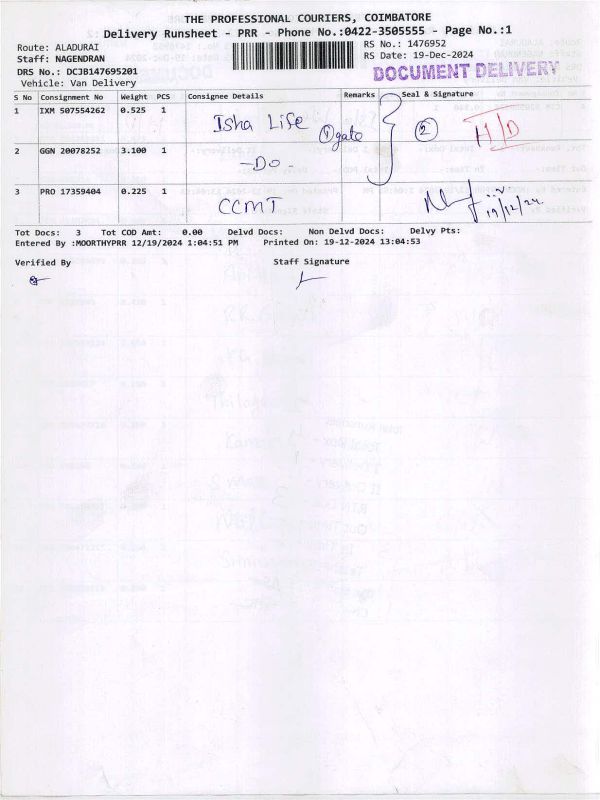 THE PROFESSIONAL COURIERS, COIMBATORE
Delivery Runsheet - PRR - Phone No.:0422-3505555 - Page No.:1
Route: ALADURAI
RS No.: 1476952
Staff: NAGENDRAN
RS Date: 19-Dec-2024
DRS No.: DCJB147695201
DOCUMENT DELIVERY
Vehicle: Van Delivery
S No Consignment No Weight PCS Consignee Details Remarks Seal & Signature
1 IXM 507554262 0.525 1 Isha Life ① gate ② H/D
2 GGN 20078252 3.100 1 -Do-
3 PRO 17359404 0.225 1 CCMT
19/12/24
Tot Docs: 3 Tot COD Amt: 0.00 Delvd Docs: Non Delvd Docs: Delvy Pts:
Entered By :MOORTHYPRR 12/19/2024 1:04:51 PM Printed On: 19-12-2024 13:04:53
Verified By Staff Signature